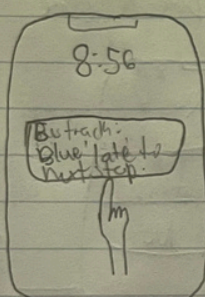 8:56
Bustrach:
Blue late to
next stop.